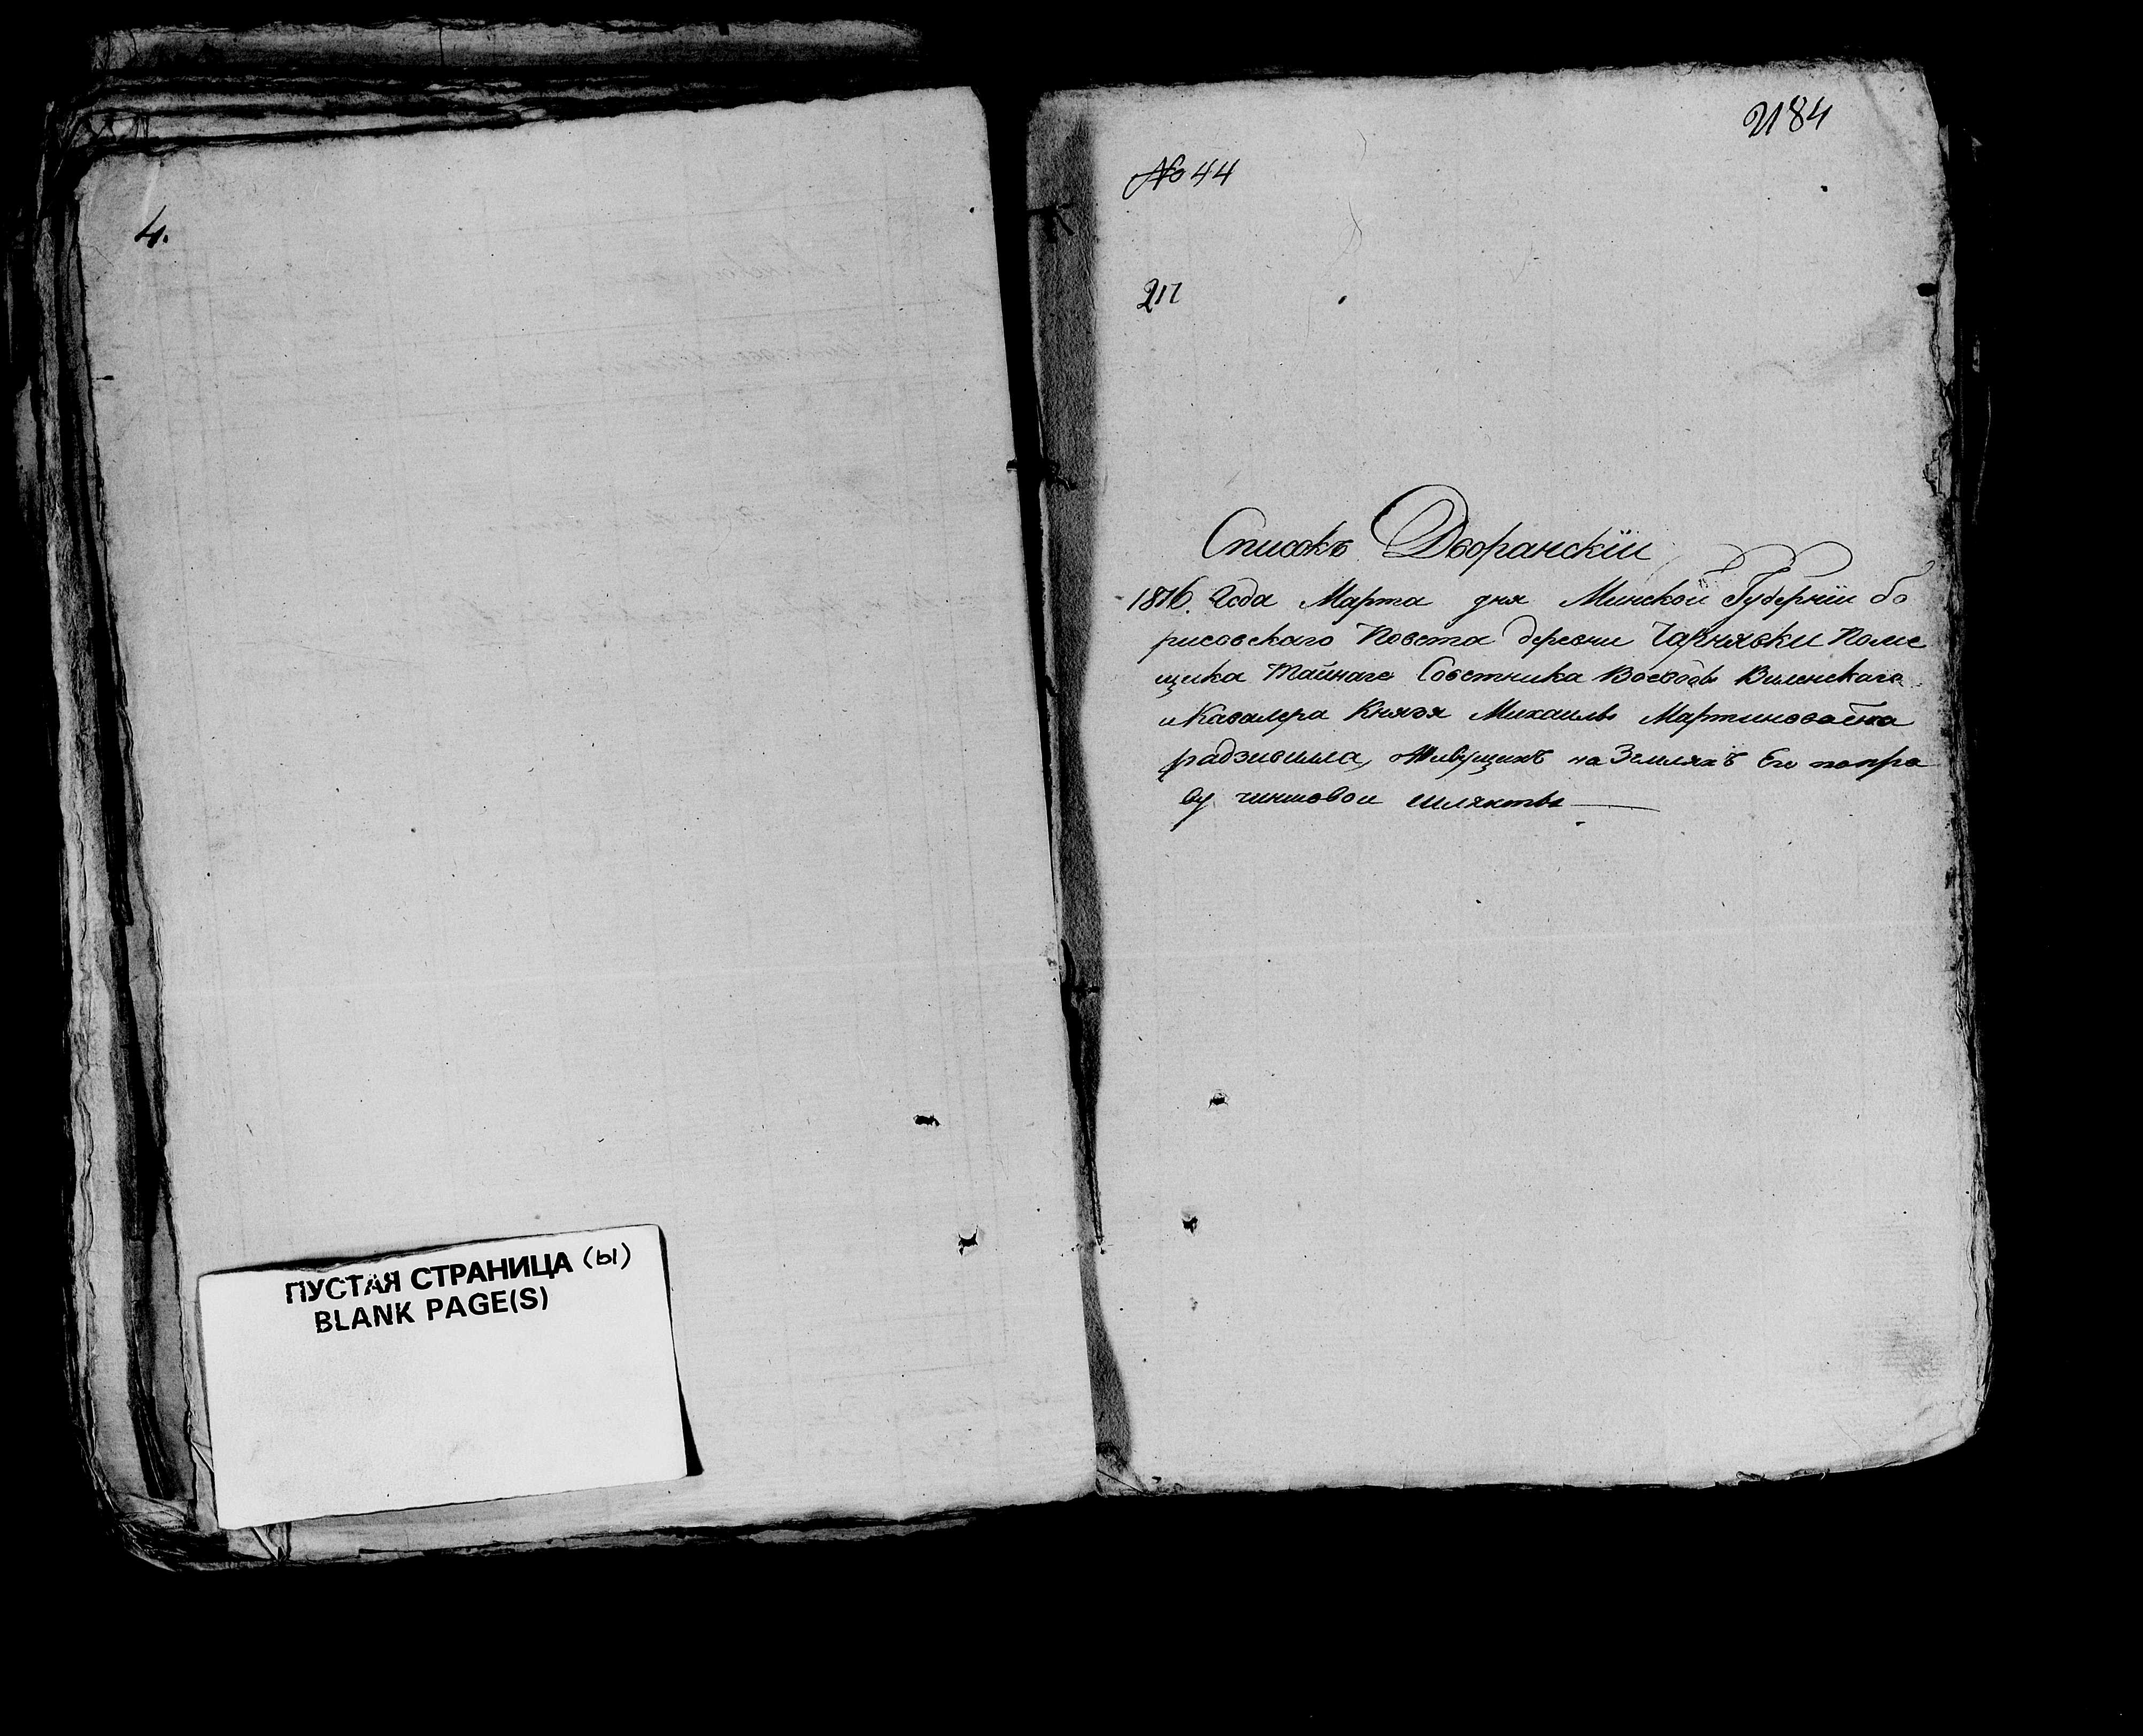 4.
ПУСТАЯ СТРАНИЦА (Ы)
BLANK PAGE(S)
№ 44
Списокъ Дворанскїи
1816. года Марта дня Минской Губернїи бо
рисовскаго Повета деревни Чарнявки Поме
щика Тайнаго Советника Воеводы Виленскаго
и Кавалера Князя Михаилы
радзивилла, Живущихъ на Земляхъ Его попра
ву чиншовои шляхты